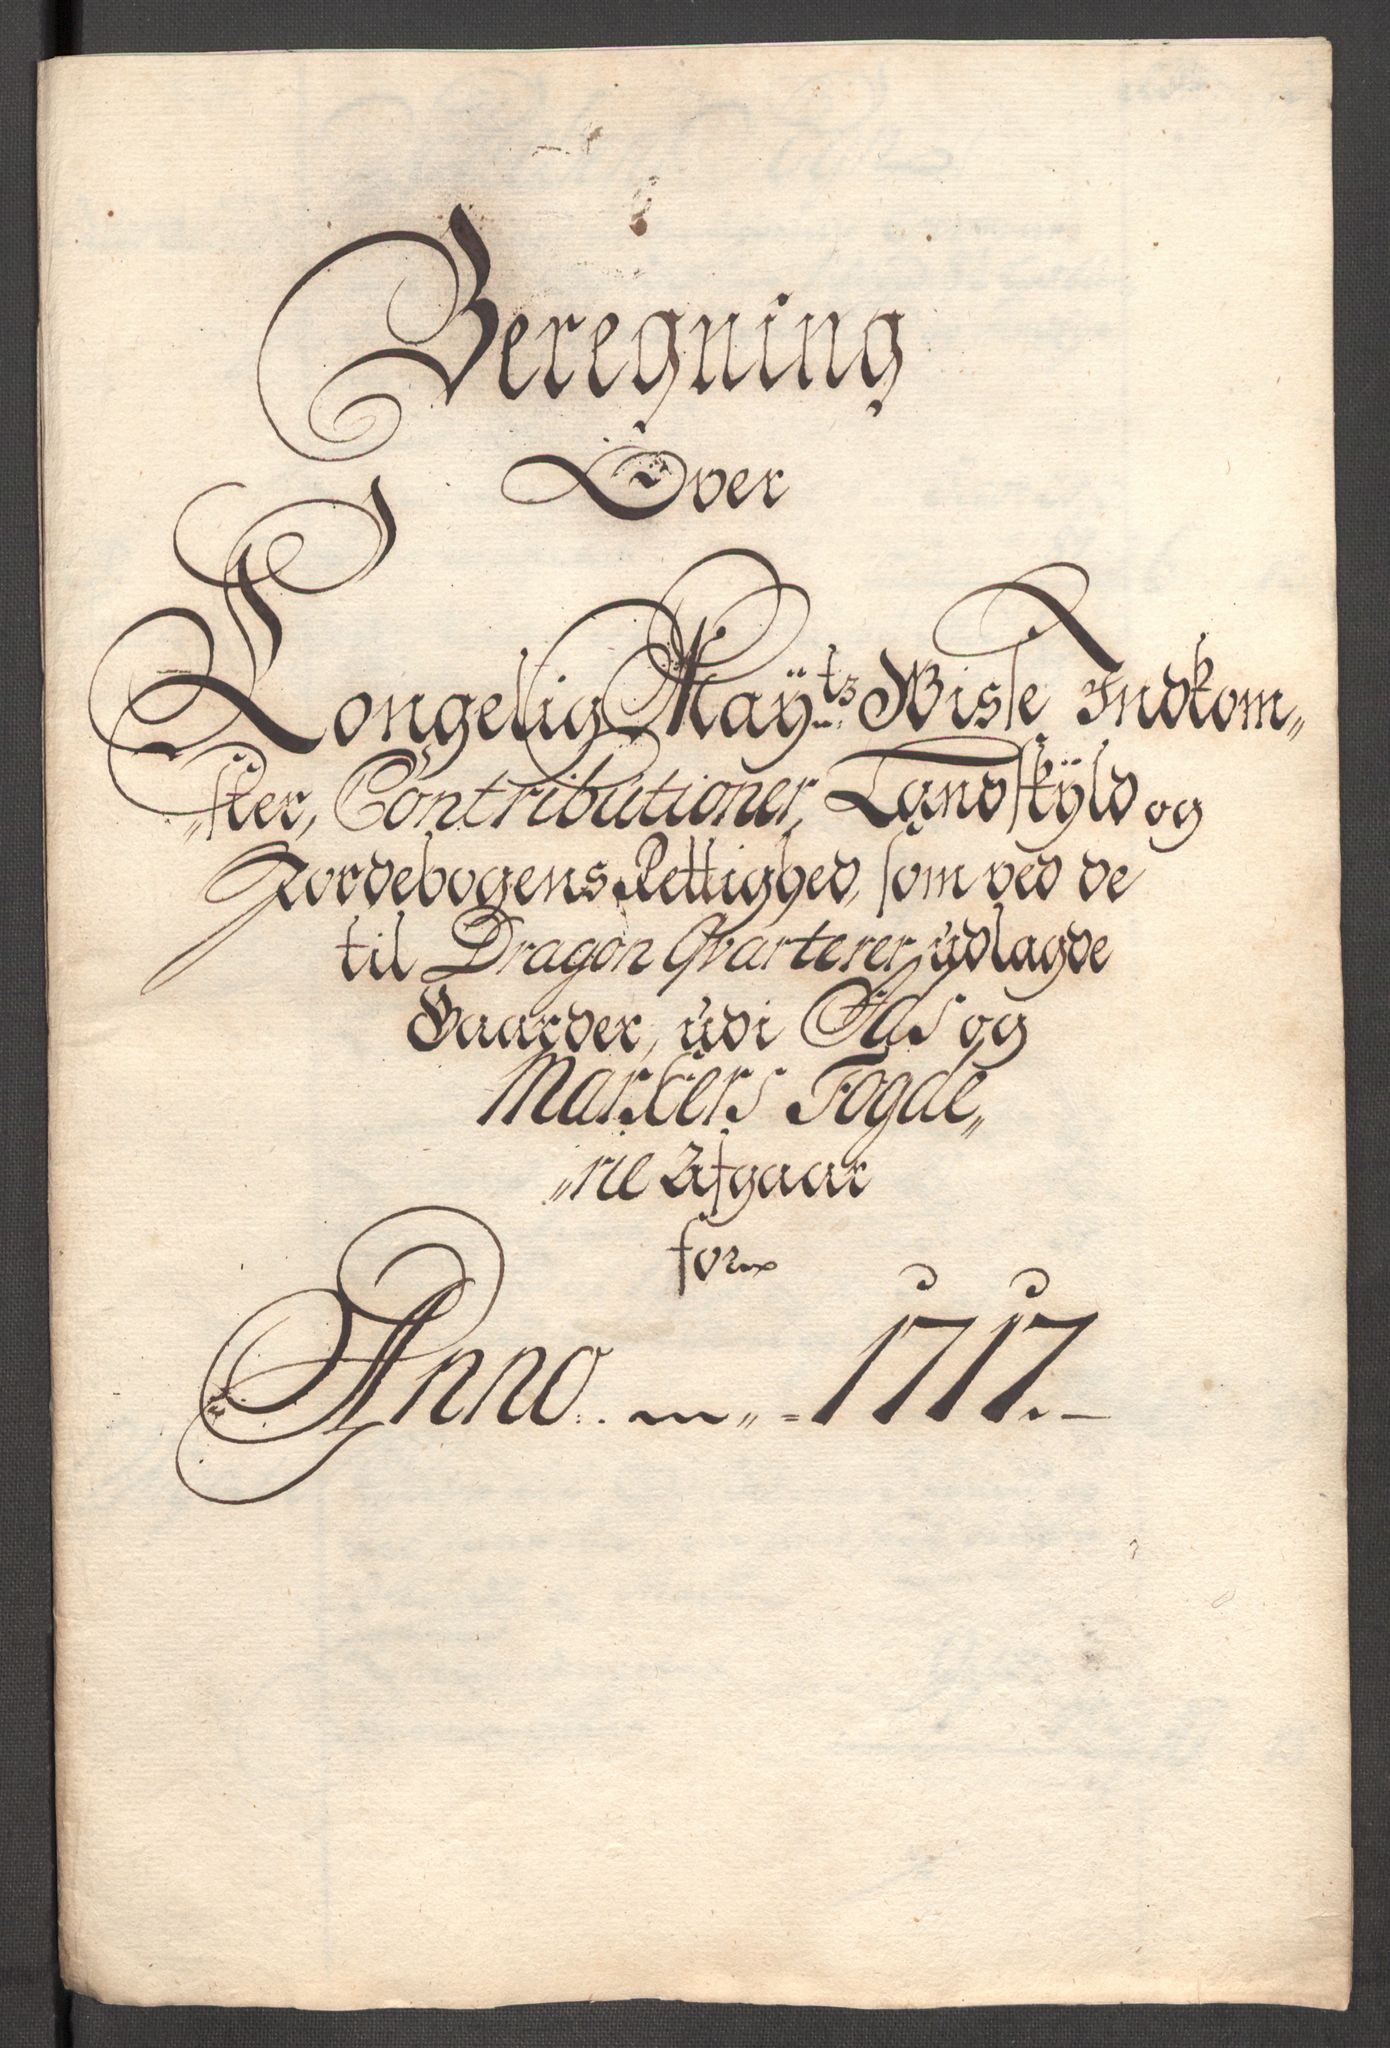 Beregning
Over
Kongelig Maÿ.ts Wisse Indkom„
„ster, Contributioner, Landskÿld og
Jordebogens Rettighed, som ved de
til Dragon Qvarterer, udlagde
Gaarder, udi Ids og
Markers Fogde„
„rie Afgaar
for
Anno 1717.